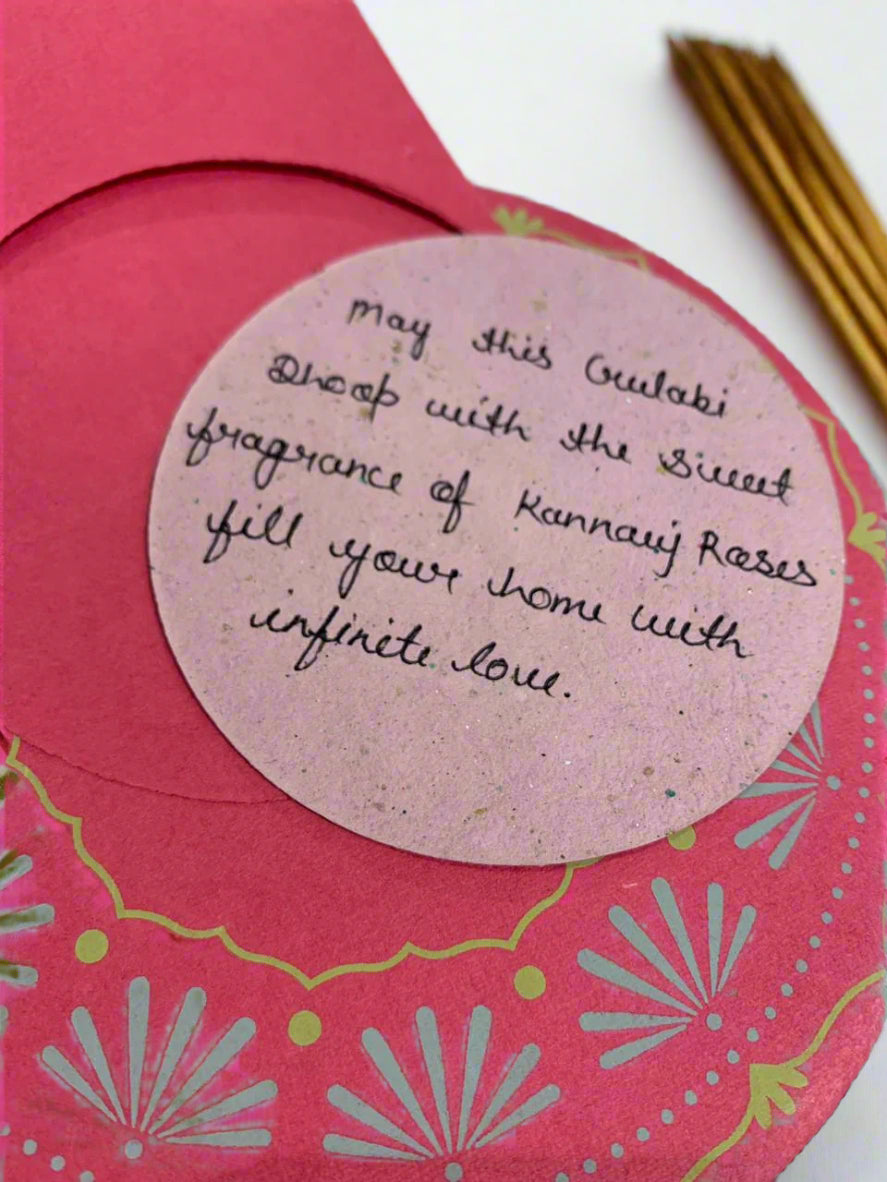 May this Gulabi
Dhoop with the sweet
fragrance of Kannauj Roses
fill your home with
infinite love.